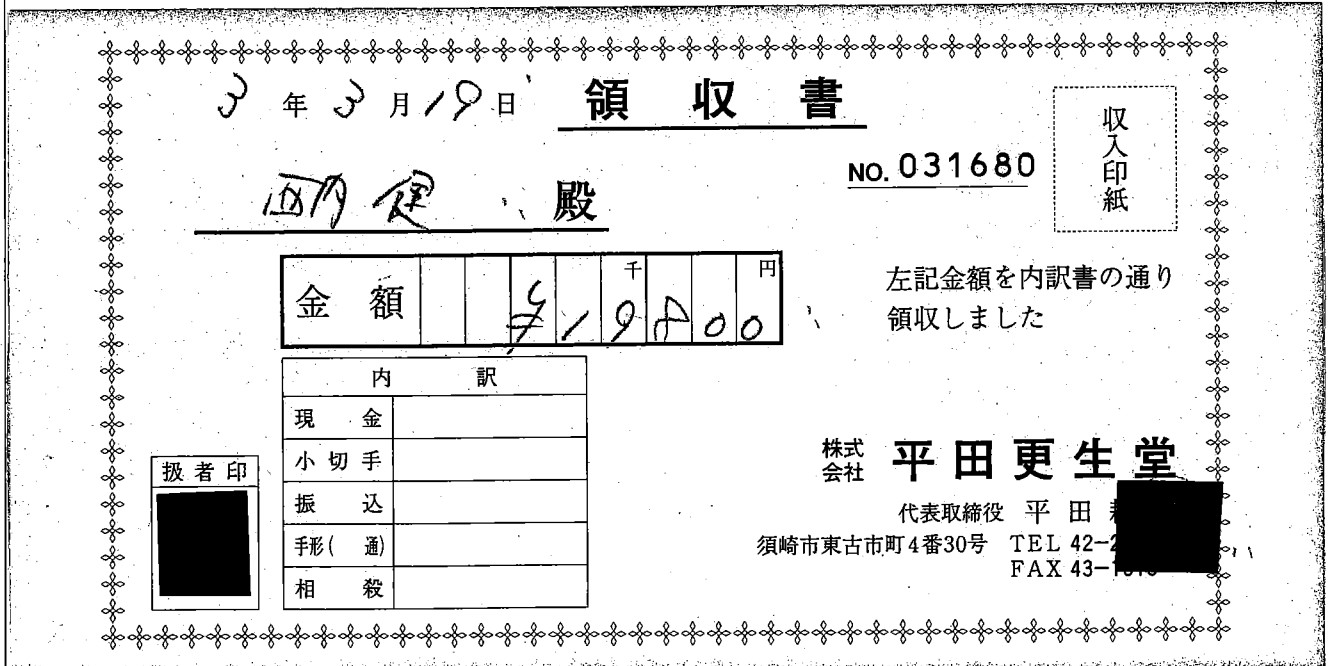 3年3月19日 領収書
収入印紙
NO. 031680
西内健 殿
金額 ¥19800 千 円
左記金額を内訳書の通り
領収しました
内訳
現金
小切手
振込
手形( 通)
相殺
扱者印
株式会社 平田更生堂
代表取締役 平田
須崎市東古市町4番30号 TEL 42-2
FAX 43-